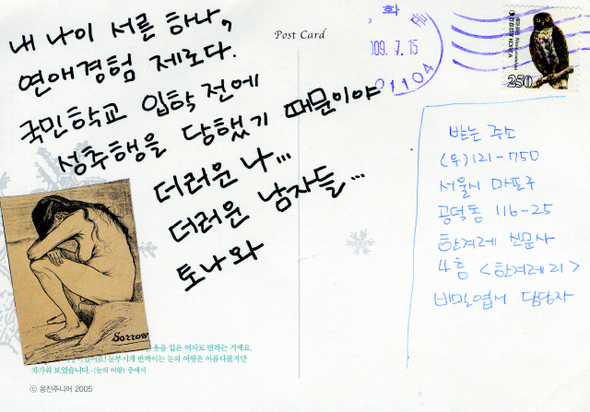 내 나이 서른 하나,
연애경험 제로다.
국민학교 입학 전에
성추행을 당했기 때문이야
더러운 나...
더러운 남자들...
토나와
Post Card
화
109. 7. 15
01104
250
받는 주소
(우)121-750
서울시 마포구
공덕동 116-25
한겨레 신문사
4층 <한겨레21>
비밀엽서 담당자
Sorrow
옷을 입은 여자로 변하는 거예요.
눈부시게 반짝이는 눈의 여왕은 아름다웠지만
차가워 보였습니다.-〈눈의 여왕〉 중에서
ⓒ 웅진주니어 2005